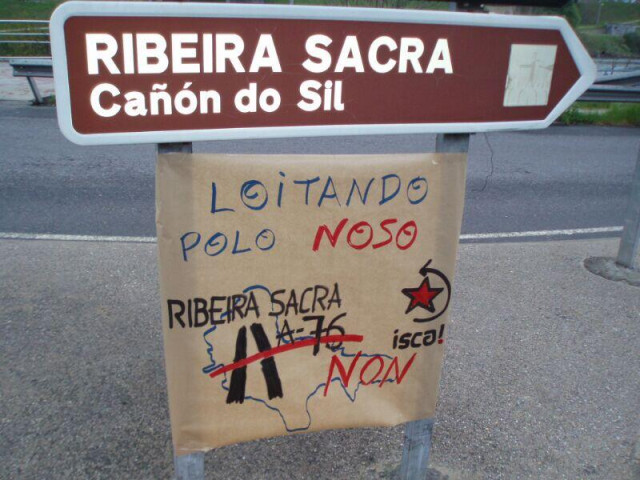 RIBEIRA SACRA
Cañón do Sil
LOITANDO
POLO NOSO
RIBEIRA SACRA
A-76
NON
isca!